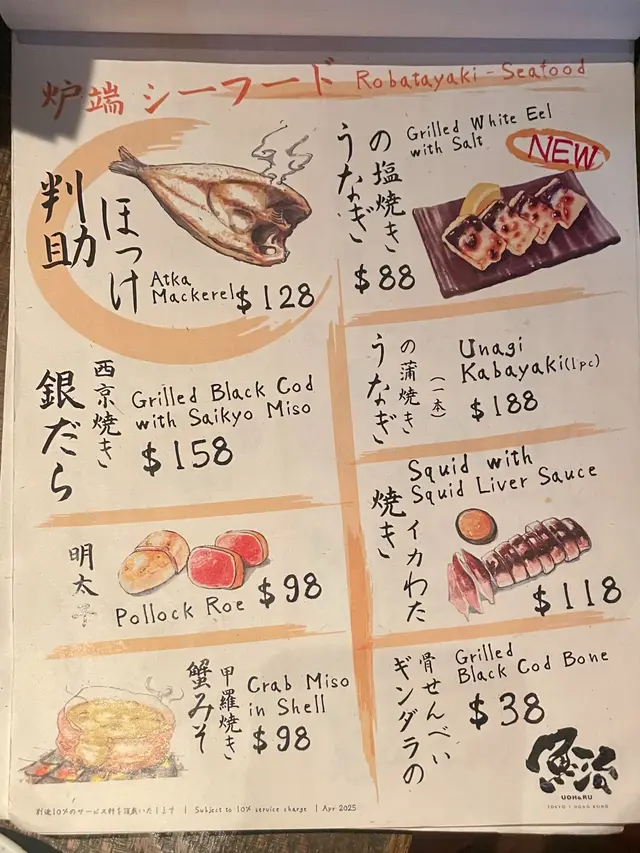 炉端 シーフード Robatayaki - Seafood
判助
ほっけ
Atka
Mackerel $128
うなぎ
の塩焼き
Grilled White Eel
with Salt
NEW
$88
銀だら
西京焼き
Grilled Black Cod
with Saikyo Miso
$158
うなぎ
の蒲焼き
(一本)
Unagi
Kabayaki(1pc)
$188
明太子
Pollock Roe $98
焼き
イカわた
Squid with
Squid Liver Sauce
$118
蟹みそ
甲羅焼き
Crab Miso
in Shell
$98
ギンダラの
骨せんべい
Grilled
Black Cod Bone
$38
別途10%のサービス料を頂戴いたします | Subject to 10% service charge | Apr 2025
魚治
UOHARU
TOKYO | HONG KONG